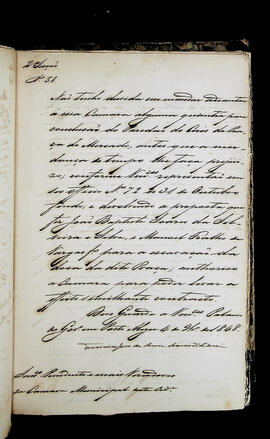 2ª Secção
Nº 51
Não tenho duvida em mandar adiantar
a essa Camara alguma quantia para
conclusão da Parede do Caes da Pra
ça do Mercado, antes que a mu
dança do tempo lhe faça prejui
zo, conforme representou em
seu officio Nº 72 de 31 de Outubro
findo; e devolvendo a proposta que
fez João Baptista Soares da Sil
veira e Souza, e Manoel Fialho de
Vargas para a escavação da
Doca da dita Praça, authoriso
a Camara para poder levar a
effeito similhante contracto.
Deos Guarde a Vmces Palacio
do Gov. em Porto Alegre 4 de de 1848.
Senrs. Presidente e mais Vereadores
da Camara Municipal desta Cide.